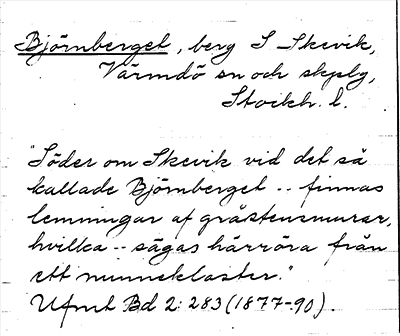 Björnberget, berg S Skevik,
Värmdö sn och skplg,
Stockh. l.
"Söder om Skevik vid det så
kallade Björnberget -- finnas
lemningar af gråstensmurar,
hvilka -- sägas härröra från
ett nunnekloster."
Ufmt Bd 2: 283 (1877-90).